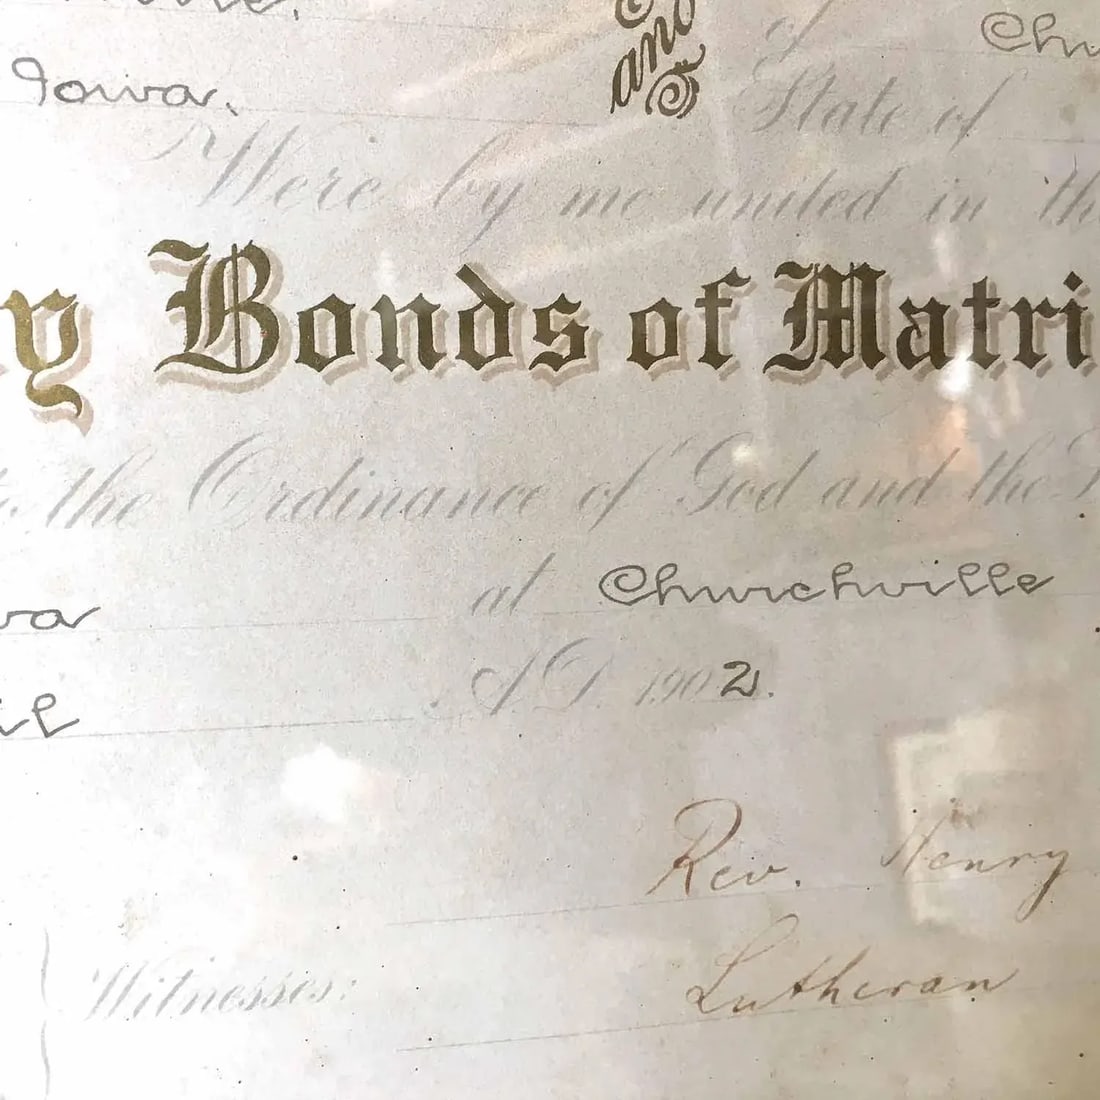 and of Chu
Iowa. State of
Were by me united in th
y Bonds of Matri
the Ordinance of God and the
va at Churchville
il A.D. 1902.
Rev. Henry
Witnesses: Lutheran